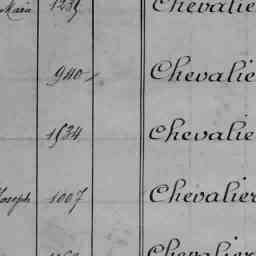 Marie 1239 Chevalie
940 Chevalie
1534 Chevalie
Joseph 1007 Chevalier
Chevalier